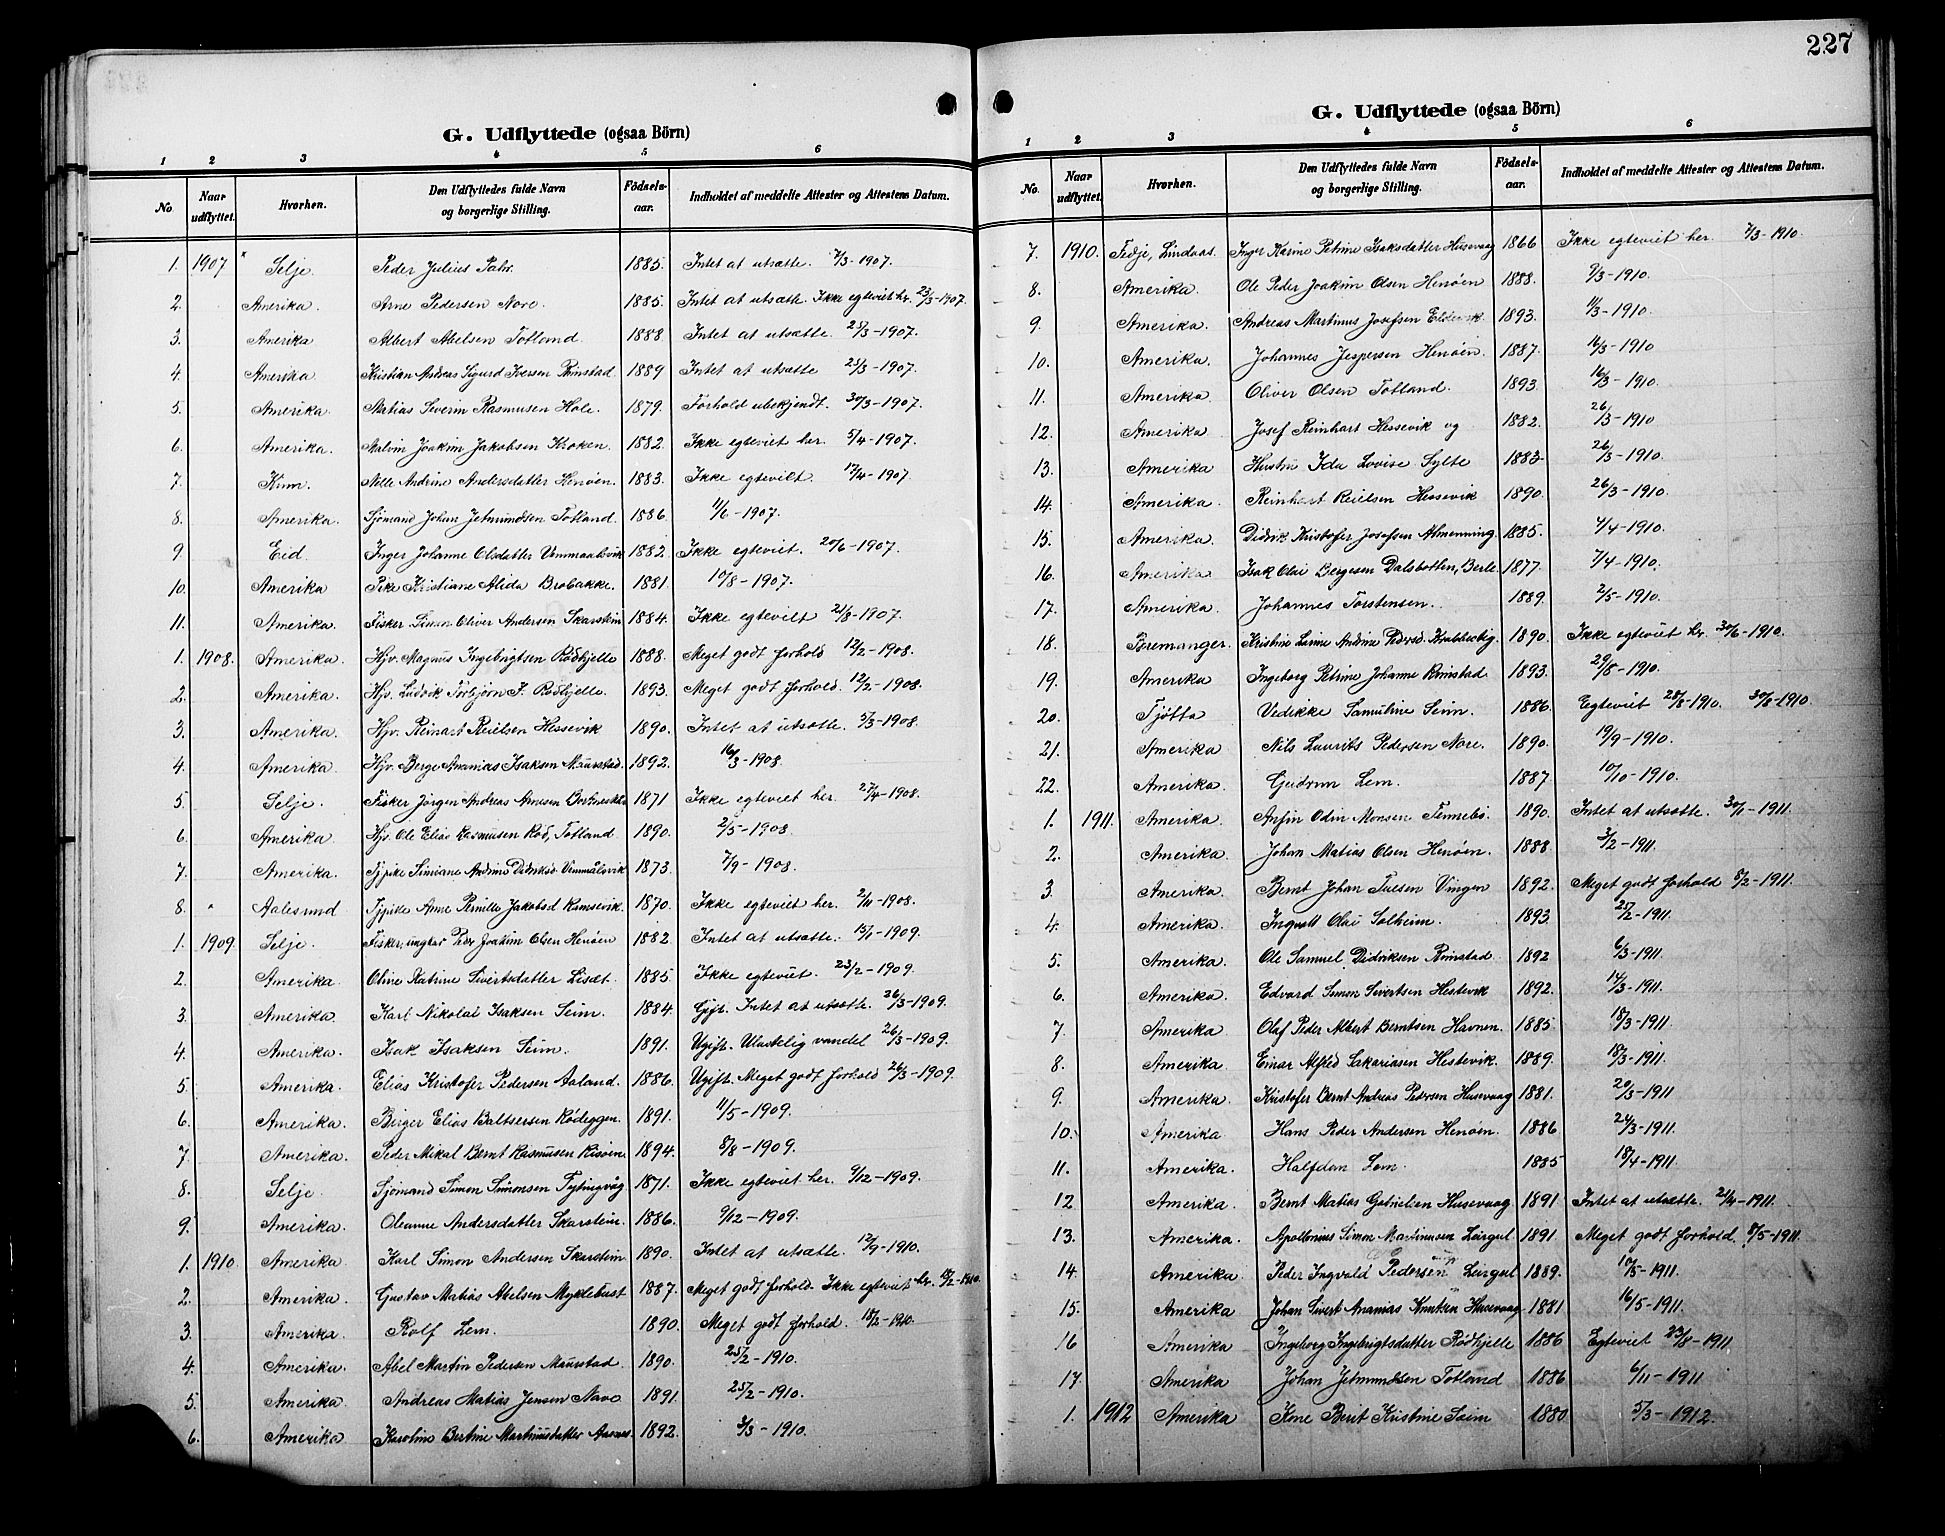 227
G. Udflyttede (ogsaa Börn)
1 2 3 4 5 6
No. Naar udflyttet. Hvorhen. Den Udflyttedes fulde Navn og borgerlige Stilling. Födsels-aar. Indholdet af meddelte Attester og Attestens Datum.
1. 1907 Selje. Peder Julius 1885. Intet at utsætte. 7/3-1907.
2. Amerika. Arne Pedersen Nore. 1885. Intet at utsætte. Ikke egteviet hr. 23/3-1907.
3. Amerika Albert Abelsen Totland. 1888 Intet at utsætte. 25/3-1907.
4. Amerika. Kristian Andreas Sigurd Iversen Rimstad 1889 Intet at utsætte 25/3-1907.
5. Amerika. Matias Severin Rasmusen Hole. 1879. Forhold ubekjendt. 30/3-1907.
6. Amerika. Malvin Joakim Jakobsen Kroken. 1882. Ikke egteviet her. 5/4-1907.
7. Kinn. Nille Andrine Andersdatter Henöen. 1883. Ikke egteviet. 17/4-1907.
8. Amerika. Sjömand Johan Jetmundsen Totland. 1886. 1/6-1907.
9. Eid. Inger Johanne Olsdatter Vemmaalsvik 1882. Ikke egteviet. 20/6-1907.
10. Amerika Pike Kristiane Alida Brobakke. 1881. 10/8-1907.
11. Amerika. Fisker Simon Oliver Andersen Skarstein 1884. Ikke egteviet 21/8-1907.
1. 1908. Amerika. Hjv. Magnus Ingebrigtsen Rödhjelle 1888. Meget godt forhold 12/2-1908.
2. Amerika. Hjv. Ludvik Torbjörn I. Rödhjelle. 1893. Meget godt forhold. 12/2-1908.
3. Amerika. Hjv. Reinart Reielsen Hessevik 1890. Intet at utsætte. 5/3-1908.
4. Amerika. Hjv. Berge Ananias Isaksen Maurstad. 1892. 16/3-1908.
5. Selje. Fisker Jörgen Andreas Arnesen 1871 Ikke egteviet her. 27/4-1908.
6. Amerika. Hjv. Ole Elias Rasmusen Röd, Totland. 1890. 2/5-1908.
7. Amerika. Tjpike Simiane Andrine Didriksd. Vemmålsvik 1873. 7/9-1908.
8. " Aalesund Tjpike Anne Pernille Jakobsd. Rimsevik. 1870. Ikke egteviet her. 2/11-1908.
1. 1909. Selje. Fisker, ungkar Peder Joakim Olsen Henöen 1882. Intet at utsætte. 15/1-1909.
2. Amerika. Oline Katrine Sivertsdatter Lisæt. 1885. Ikke egteviet. 23/2-1909.
3. Amerika. Karl Nikolai Isaksen Seim. 1884. Gift. Intet at utsætte. 26/3-1909.
4. Amerika. Isak Isaksen Seim. 1891. Ugift. Ulastelig vandel 26/3-1909.
5. Amerika. Elias Kristofer Pedersen Aaland. 1886. Ugift. Meget godt forhold 26/3-1909.
6. Amerika. Birger Elias Baltsersen Rödeggen. 1891. 11/5-1909.
7. Amerika. Peder Mikal Bernt Rasmusen Risöen. 1894. 8/8-1909.
8. Selje. Sjömand Simon Simonsen Tytingvåg 1871. Ikke egteviet her. 9/12-1909.
9. Amerika. Oleanne Andersdatter Skarstein. 1886. 9/12-1909.
1. 1910. Amerika. Karl Simon Andersen Skarstein 1890. Intet at utsætte. 12/9-1910.
2. Amerika. Gustav Matias Abelsen Myklebust 1887. Meget godt forhold. Ikke egteviet hr. 18/2-1910.
3. Amerika. Rolf Lem. 1890. Meget godt forhold. 18/2-1910.
4. Amerika. Abel Martin Pedersen Maurstad. 1890. 25/2-1910.
5. Amerika. Andreas Matias Jensen Nave 1891. 25/2-1910.
6. Amerika Karoline Bertine Martinusdatter Aasnes. 1892. 3/3-1910.
G. Udflyttede (ogsaa Börn)
1 2 3 4 5 6
No. Naar udflyttet. Hvorhen. Den Udflyttedes fulde Navn og borgerlige Stilling. Födsels-aar. Indholdet af meddelte Attester og Attestens Datum.
7. 1910. Fedje, Lindaas. Inger Karine Petrine Isaksdatter Husevaag 1866 Ikke egteviet her. 7/3-1910.
8. Amerika. Ole Peder Joakim Olsen Henöen 1888. 9/3-1910.
9. Amerika. Andreas Martinus Josefsen Eldevik 1893. 11/3-1910.
10. Amerika. Johannes Jespersen Henöen. 1887. 16/3-1910
11. Amerika. Oliver Olsen Totland. 1893. 16/3-1910.
12. Amerika. Josef Reinhart Hessevik og 1882. 26/3-1910
13. Amerika Hustru Ida Lovise Sylte 1883. 26/3-1910.
14. Amerika. Reinhart Reielsen Hessevik 1890. 26/3-1910.
15. Amerika. Didrik Kristofer Josefsen Almenning. 1885. 4/4-1910.
16. Amerika. Isak Olai Bergesen Dalsbotten, Berle 1877. 7/4-1910.
17. Amerika. Johannes Torstensen. 1889. 2/5-1910.
18. Foremanger. Kristine Larine Andrine Pedersd. Krabbestig. 1890. Ikke egteviet hr. 30/6-1910.
19. Amerika Ingeborg Petrine Johanne Rimstad 1893. 29/8-1910.
20. Tjötta Vedikke Samueline Seim. 1886. Egteviet 28/8-1910. 30/8-1910.
21. Amerika Nils Laurits Pedersen Nore. 1890. 19/9-1910.
22. Amerika. Gudrun Lem. 1887. 10/10-1910.
1. 1911. Amerika. Anfin Odin Monsen Tennebö. 1890. Intet at utsætte. 30/1-1911.
2. Amerika. Johan Matias Olsen Henöen. 1888. 3/2-1911.
3. Amerika. Bernt Johan Tuesen Vingen 1892. Meget godt forhold 8/2-1911.
4. Amerika. Ingvall Olai Solheim. 1893. 25/2-1911.
5. Amerika. Ole Samuel Didriksen Rimstad 1892 6/3-1911.
6. Amerika. Edvard Simon Sivertsen Hestevik 1892. 14/3-1911.
7. Amerika. Olaf Peder Albert Berntsen Havnen. 1885. 18/3-1911.
8. Amerika. Einar Alfred Sakariasen Hestevik. 1889. 18/3-1911.
9. Amerika. Kristofer Bernt Andreas Pedersen Husevaag 1881. 20/3-1911
10. Amerika. Hans Peder Andersen Henöen. 1886 24/3-1911.
11. Amerika. Halfdan Lem. 1885 18/4-1911.
12. Amerika. Bernt Matias Gabrielsen Husevaag 1891 Intet at utsætte. 21/4-1911.
13. Amerika. Apollonius Simon Martinusen Leirgul 1891. Meget godt forhold. 8/5-1911.
14. Amerika. Peder Ingvald Pedersen Leirgul 1889. 10/5-1911.
15. Amerika Johan Sivert Ananias Knutsen Husevaag 1881 16/5-1911.
16 Amerika Ingeborg Ingebrigtsdatter Rödhjelle 1886 Egteviet 23/8-1911.
17. Amerika Johan Jetmundsen Totland 1886 6/11-1911
1. 1912 Amerika Kone Berit Kristine Seim 1880 5/3-1912.